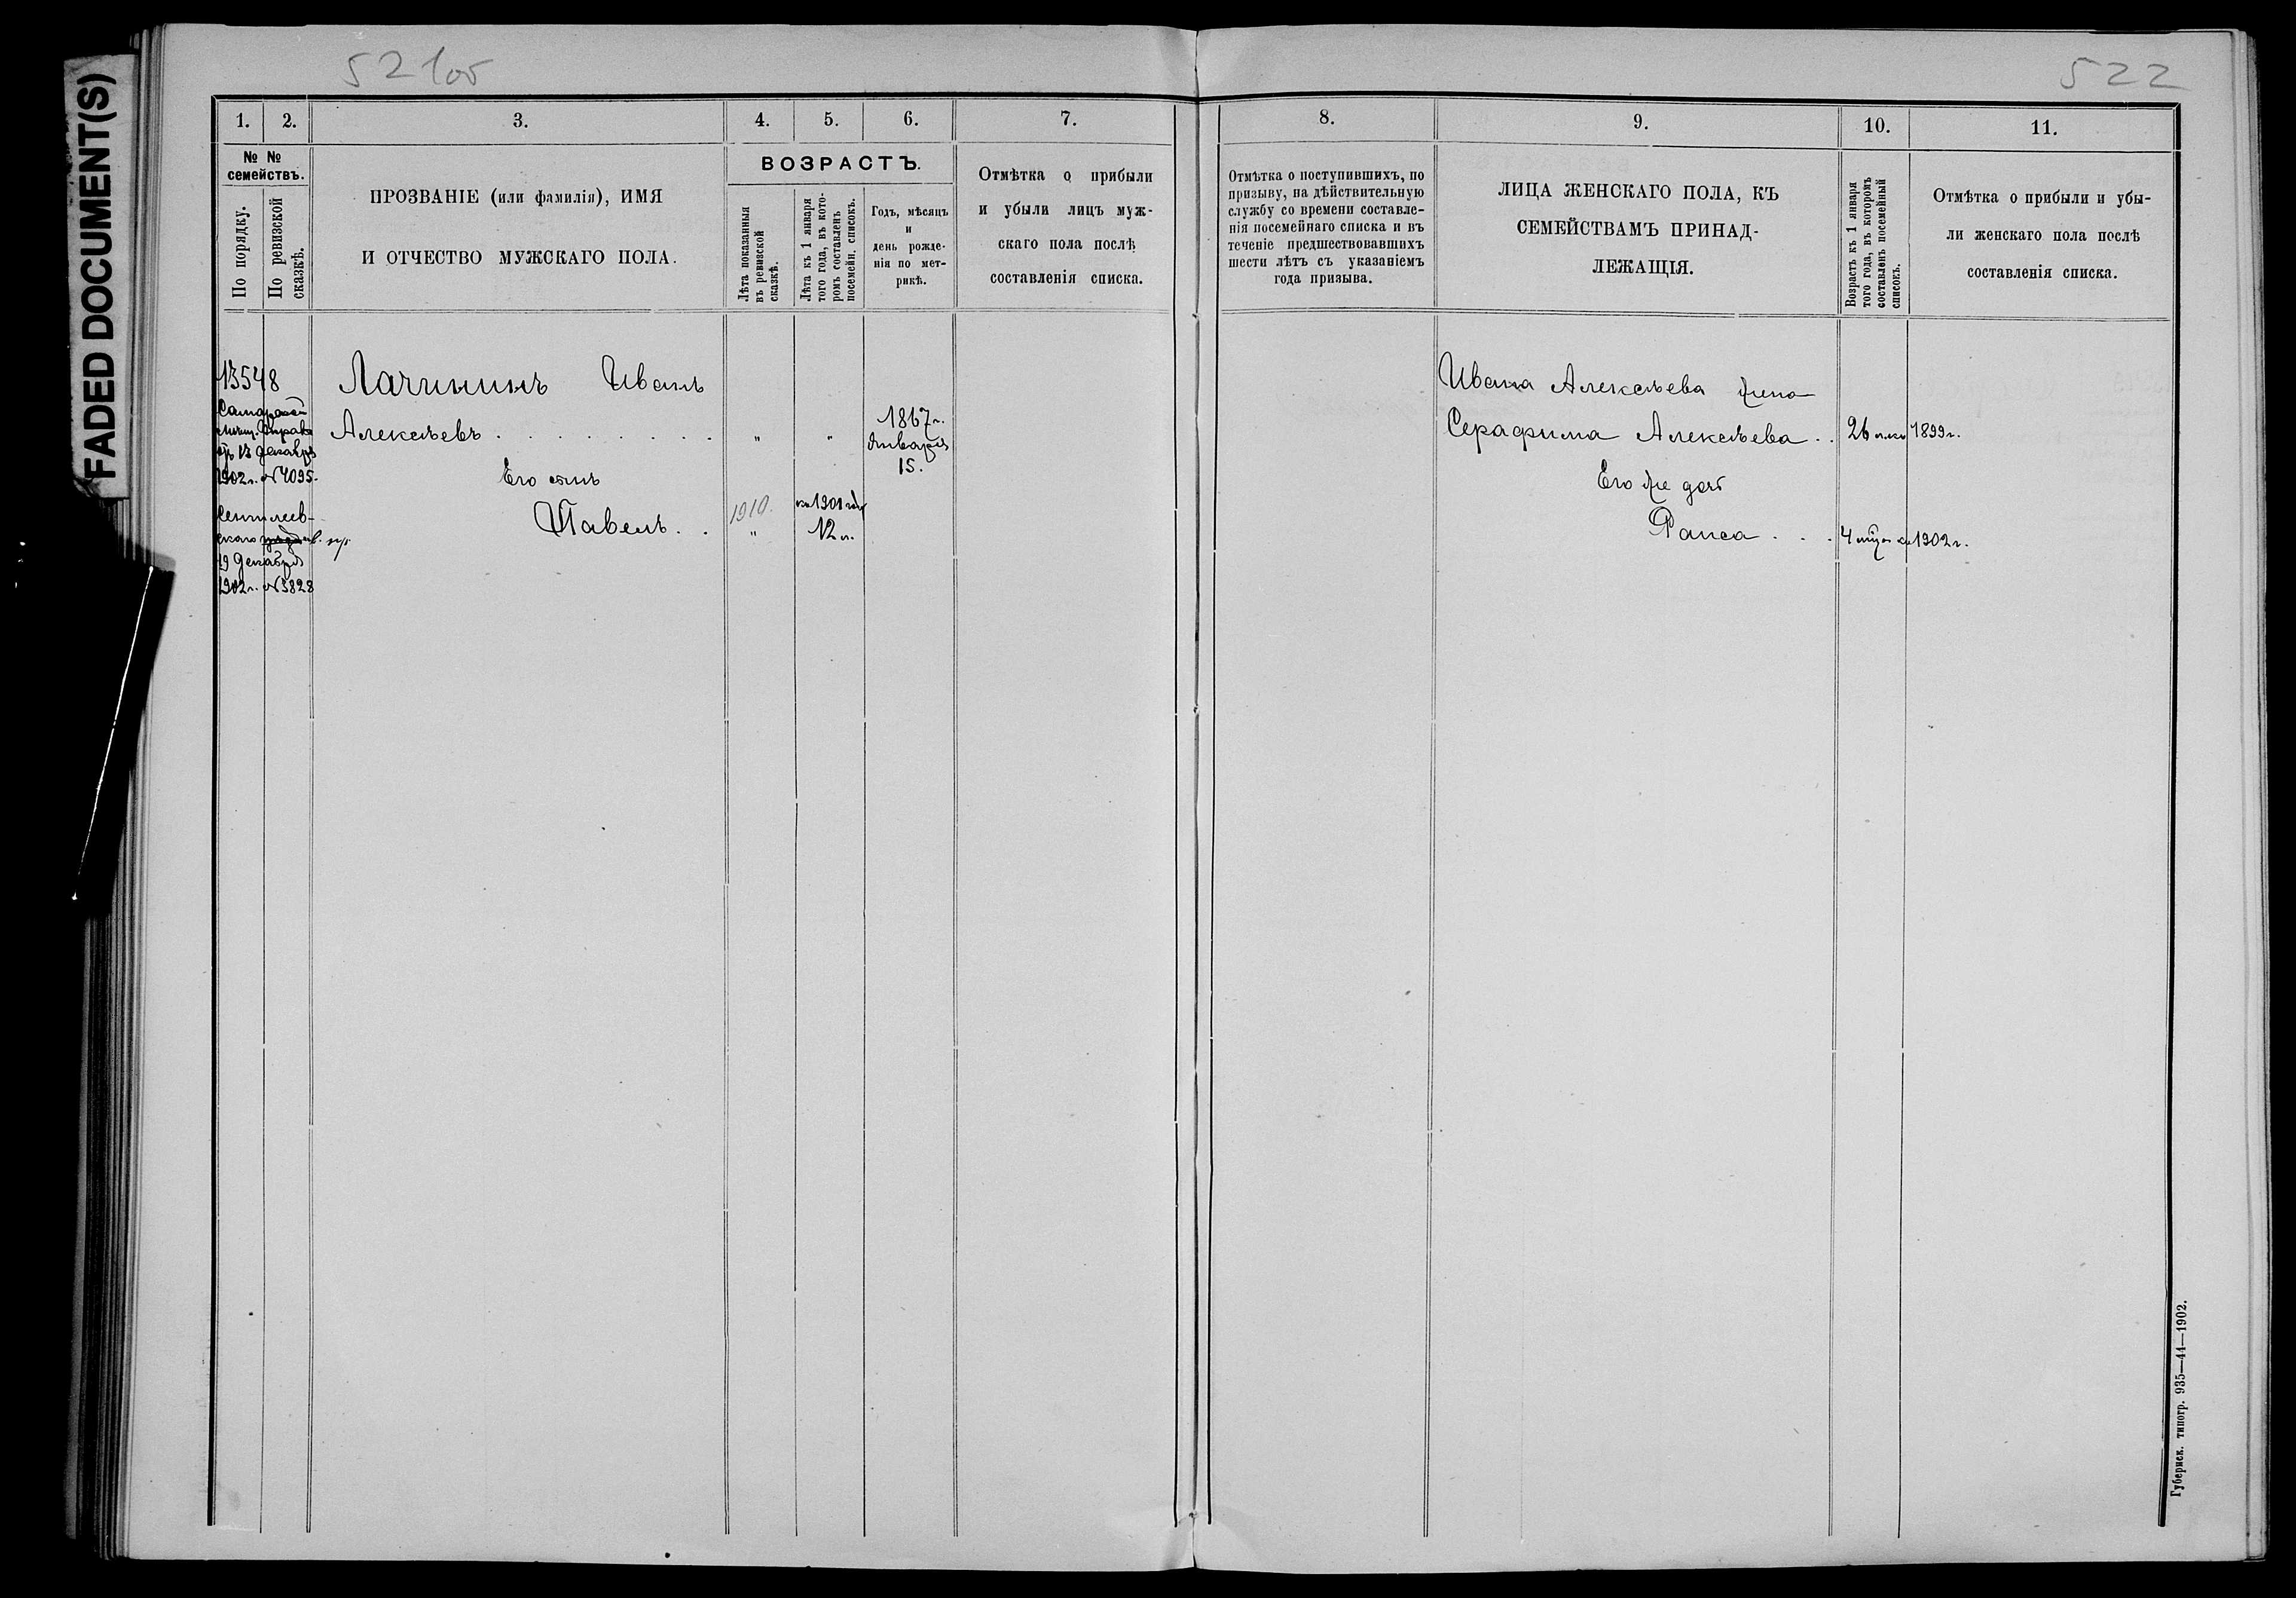 FADED DOCUMENT(S)
521об
522
1. 2. 3. 4. 5. 6. 7. 8. 9. 10. 11.
№ №
семействъ.
По порядку.
По ревизской
сказкѣ.
ПРОЗВАНІЕ (или фамилія), ИМЯ
И ОТЧЕСТВО МУЖСКАГО ПОЛА.
ВОЗРАСТЪ.
Лѣта показанныя
въ ревизской
сказкѣ.
Лѣта къ 1 января
того года, въ кото-
ромъ составленъ
посемейн. списокъ.
Годъ, мѣсяцъ
и
день рожде-
нія по мет-
рикѣ.
Отмѣтка о прибыли
и убыли лицъ муж-
скаго пола послѣ
составленія списка.
Отмѣтка о поступившихъ, по
призыву, на дѣйствительную
службу со времени составле-
нія посемейнаго списка и въ
теченіе предшествовавшихъ
шести лѣтъ съ указаніемъ
года призыва.
ЛИЦА ЖЕНСКАГО ПОЛА, КЪ
СЕМЕЙСТВАМЪ ПРИНАД-
ЛЕЖАЩІЯ.
Возрастъ къ 1 января
того года, въ которомъ
составленъ посемейный
списокъ.
Отмѣтка о прибыли и убы-
ли женскаго пола послѣ
составленія списка.
13548
Самарской
мѣщ. Управы
13 Декабря
1902 г. № 4095.
19 Декабря
1902 г. № 3828
Лачининъ Иванъ
Алексѣевъ . . . . . . . . „ „
1867 г.
Января
15.
Его сынъ
Павелъ . . „
1910.
къ 1901 году
12 л.
Ивана Алексѣева жена
Серафима Алексѣева . . 26 л. къ 1899 г.
Его же дочь
Раиса . . . 4 мѣс. къ 1902 г.
Губернск. типогр. 935—44—1902.